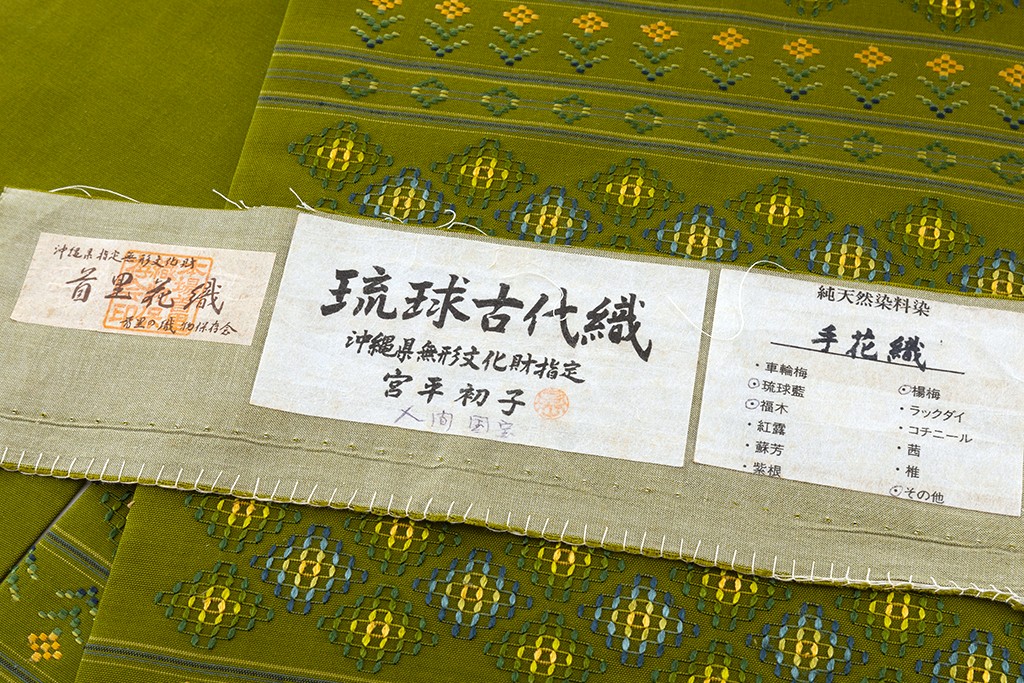 沖縄県指定無形文化財
首里花織
首里の織物保存会
琉球古代織
沖縄県無形文化財指定
宮平初子
人間国宝
純天然染料染
手花織
・車輪梅
・琉球藍
・福木
・紅露
・蘇芳
・紫根
・楊梅
・ラックダイ
・コチニール
・茜
・椎
・その他